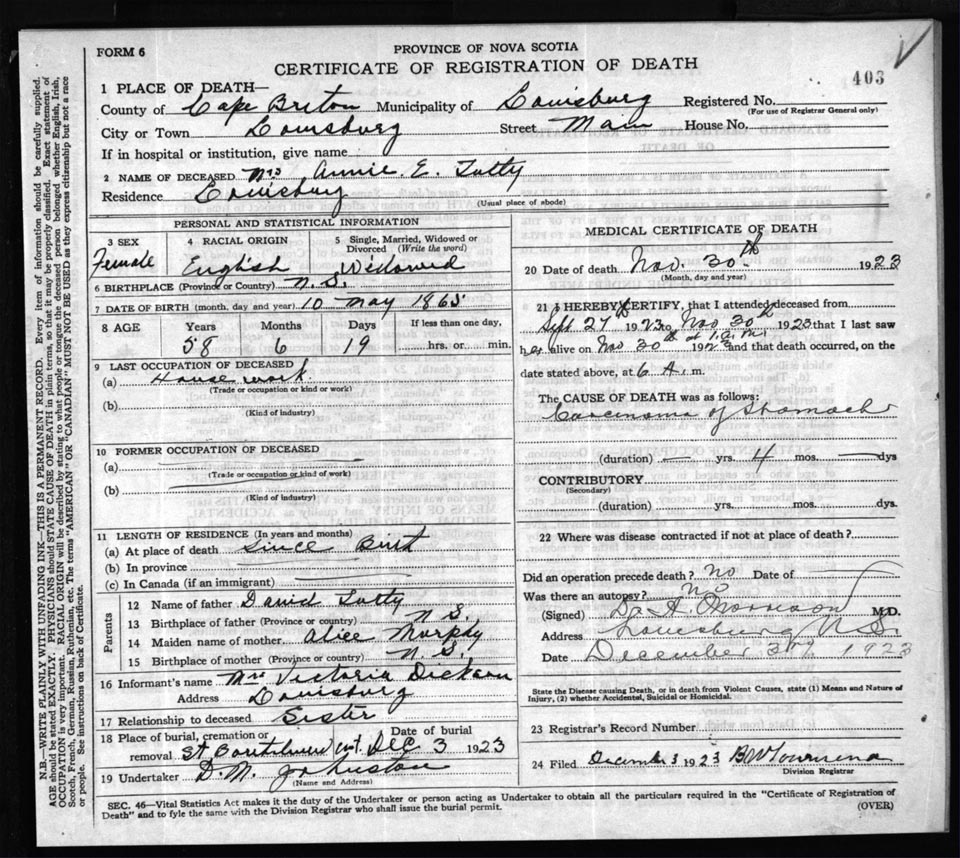 FORM 6
PROVINCE OF NOVA SCOTIA
CERTIFICATE OF REGISTRATION OF DEATH
403
1 PLACE OF DEATH—
County of Cape Breton Municipality of Louisburg Registered No.
(For use of Registrar General only)
City or Town Louisburg Street Main House No.
If in hospital or institution, give name
2 NAME OF DECEASED Mrs Annie E. Tutty
Residence Louisburg
(Usual place of abode)
PERSONAL AND STATISTICAL INFORMATION
3 SEX
Female
4 RACIAL ORIGIN
English
5 Single, Married, Widowed or Divorced (Write the word)
Widowed
6 BIRTHPLACE (Province or Country) N.S.
7 DATE OF BIRTH (month, day and year) 10 May 1865
8 AGE Years Months Days If less than one day,
58 6 19 hrs. or min.
9 LAST OCCUPATION OF DECEASED
(a) House work
(Trade or occupation or kind or work)
(b)
(Kind of industry)
10 FORMER OCCUPATION OF DECEASED
(a)
(Trade or occupation or kind of work)
(b)
(Kind of industry)
11 LENGTH OF RESIDENCE (In years and months)
(a) At place of death Since Birth
(b) In province
(c) In Canada (if an immigrant)
Parents
12 Name of father David Tutty
13 Birthplace of father (Province or country) N S.
14 Maiden name of mother Alice Murphy
15 Birthplace of mother (Province or country) N.S.
16 Informant's name Mrs Victoria Dickson
Address Louisburg
17 Relationship to deceased Sister
18 Place of burial, cremation or
removal St Dec 3 1923
19 Undertaker D.M. Johnston
(Name and Address)
MEDICAL CERTIFICATE OF DEATH
20 Date of death Nov. 30th 1923
(Month, day and year)
21 I HEREBY CERTIFY, that I attended deceased from
Sept 27th 1923 to Nov 30th 1923 that I last saw
her alive on Nov 30th 1923 and that death occurred, on the
date stated above, at 6 A. m.
The CAUSE OF DEATH was as follows:
Carcinoma of Stomach
(duration) — yrs. 4 mos. — dys
CONTRIBUTORY
(Secondary)
(duration) yrs. mos. dys.
22 Where was disease contracted if not at place of death?
Did an operation precede death? No Date of —
Was there an autopsy? No
(Signed) Dr A. Morrison M.D.
Address Louisburg N.S.
Date December 3rd 1923
State the Disease causing Death, or in death from Violent Causes, state (1) Means and Nature of Injury, (2) whether Accidental, Suicidal or Homicidal.
23 Registrar's Record Number
24 Filed December 3 1923
Division Registrar
SEC. 46—Vital Statistics Act makes it the duty of the Undertaker or person acting as Undertaker to obtain all the particulars required in the "Certificate of Registration of
Death" and to fyle the same with the Division Registrar who shall issue the burial permit. (OVER)
N.B.—WRITE PLAINLY WITH UNFADING INK—THIS IS A PERMANENT RECORD. Every item of information should be carefully supplied.
AGE should be stated EXACTLY. PHYSICIANS should STATE CAUSE OF DEATH in plain terms, so that it may be properly classified. Exact statement of
OCCUPATION is very important. RACIAL ORIGIN will be described by stating to what people or tongue the deceased person belonged whether English, Irish,
Scotch, French, German, Russian, Ruthenian, etc. The terms "AMERICAN" OR "CANADIAN" MUST NOT BE USED as they express citizenship but not a race
or people. See instructions on back of Certificate.